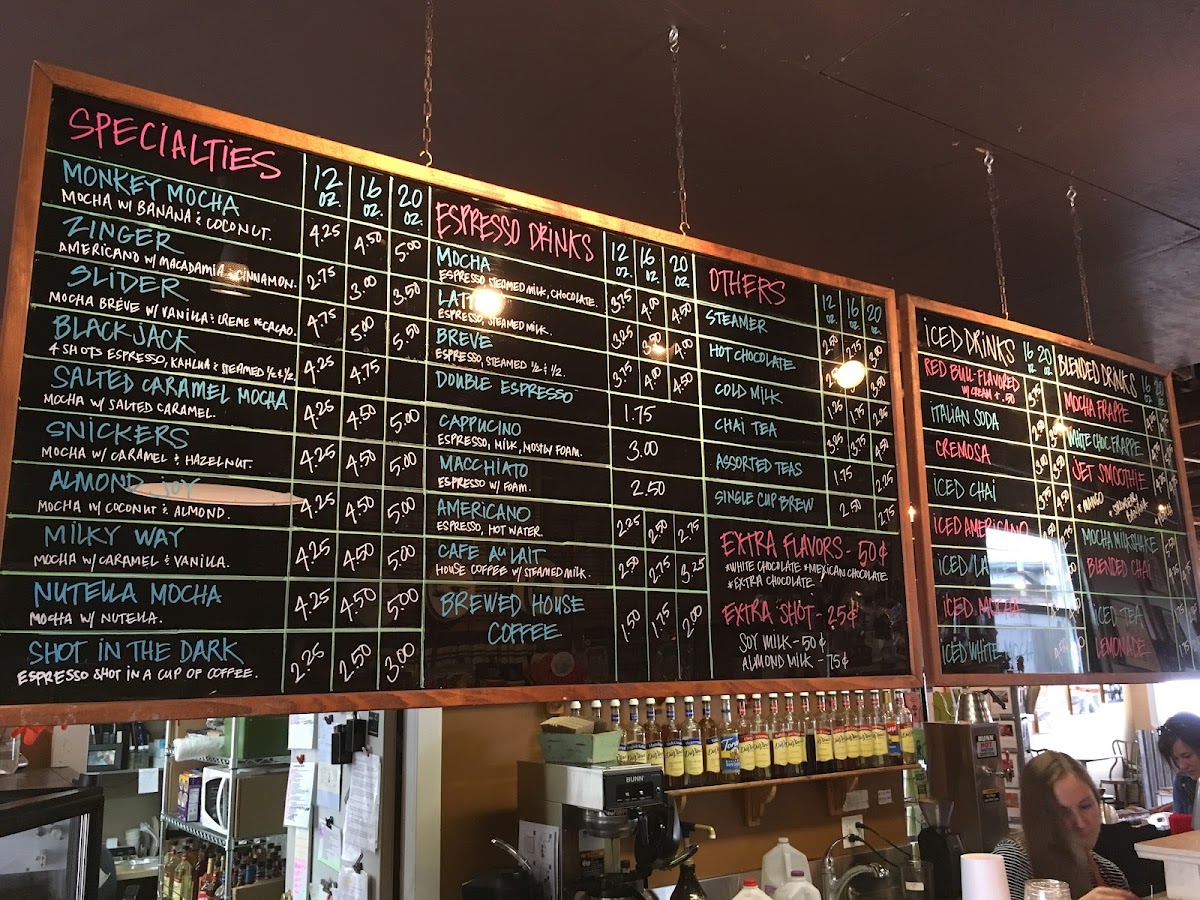 SPECIALTIES 12 OZ. 16 OZ. 20 OZ.
MONKEY MOCHA 4.25 4.50 5.00
MOCHA W/ BANANA & COCONUT.
ZINGER 2.75 3.00 3.50
AMERICANO W/ MACADAMIA & CINNAMON.
SLIDER 4.75 5.00 5.50
MOCHA BREVE W/ VANILLA & CREME DE CACAO.
BLACKJACK 4.25 4.75
4 SHOTS ESPRESSO, KAHLUA & STEAMED ½ & ½
SALTED CARAMEL MOCHA 4.25 4.50 5.00
MOCHA W/ SALTED CARAMEL.
SNICKERS 4.25 4.50 5.00
MOCHA W/ CARAMEL & HAZELNUT.
ALMOND JOY 4.25 4.50 5.00
MOCHA W/ COCONUT & ALMOND.
MILKY WAY 4.25 4.50 5.00
MOCHA W/ CARAMEL & VANILLA.
NUTELLA MOCHA 4.25 4.50 5.00
MOCHA W/ NUTELLA.
SHOT IN THE DARK 2.25 2.50 3.00
ESPRESSO SHOT IN A CUP OF COFFEE.
ESPRESSO DRINKS 12 OZ. 16 OZ. 20 OZ.
MOCHA 3.75 4.00 4.50
ESPRESSO STEAMED MILK, CHOCOLATE.
3.25 3.50 4.00
ESPRESSO, STEAMED MILK.
BREVE 3.75 4.00 4.50
ESPRESSO, STEAMED ½ & ½.
DOUBLE ESPRESSO 1.75
CAPPUCINO 3.00
ESPRESSO, MILK, MOSTLY FOAM.
MACCHIATO 2.50
ESPRESSO W/ FOAM.
AMERICANO 2.25 2.50 2.75
ESPRESSO, HOT WATER.
CAFE AU LAIT 2.50 2.75 3.25
HOUSE COFFEE W/ STEAMED MILK.
BREWED HOUSE 1.50 1.75 2.00
COFFEE
OTHERS 12 OZ. 16 OZ. 20 OZ.
STEAMER 2.50 2.75 3.00
HOT CHOCOLATE 3.50
COLD MILK 1.25 1.75 2.25
CHAI TEA 3.25 3.75 4.50
ASSORTED TEAS 1.75 2.25
SINGLE CUP BREW 2.50 2.75
EXTRA FLAVORS - 50¢
*WHITE CHOCOLATE *MEXICAN CHOCOLATE
*EXTRA CHOCOLATE
EXTRA SHOT - 25¢
SOY MILK - 50¢
ALMOND MILK - 75¢
ICED DRINKS 16 OZ. 20 OZ.
RED BULL-FLAVORED
W/ CREAM + .50
ITALIAN SODA
CREMOSA
ICED CHAI
ICED AMERICANO
ICED
ICED MOCHA
ICED WHITE
BLENDED DRINKS 16 20
MOCHA FRAPPE
WHITE CHOC FRAPPE
JET SMOOTHIE
* MANGO
MOCHA MILKSHAKE
BLENDED CHAI
ICED TEA
LEMONADE
BUNN
BUNN